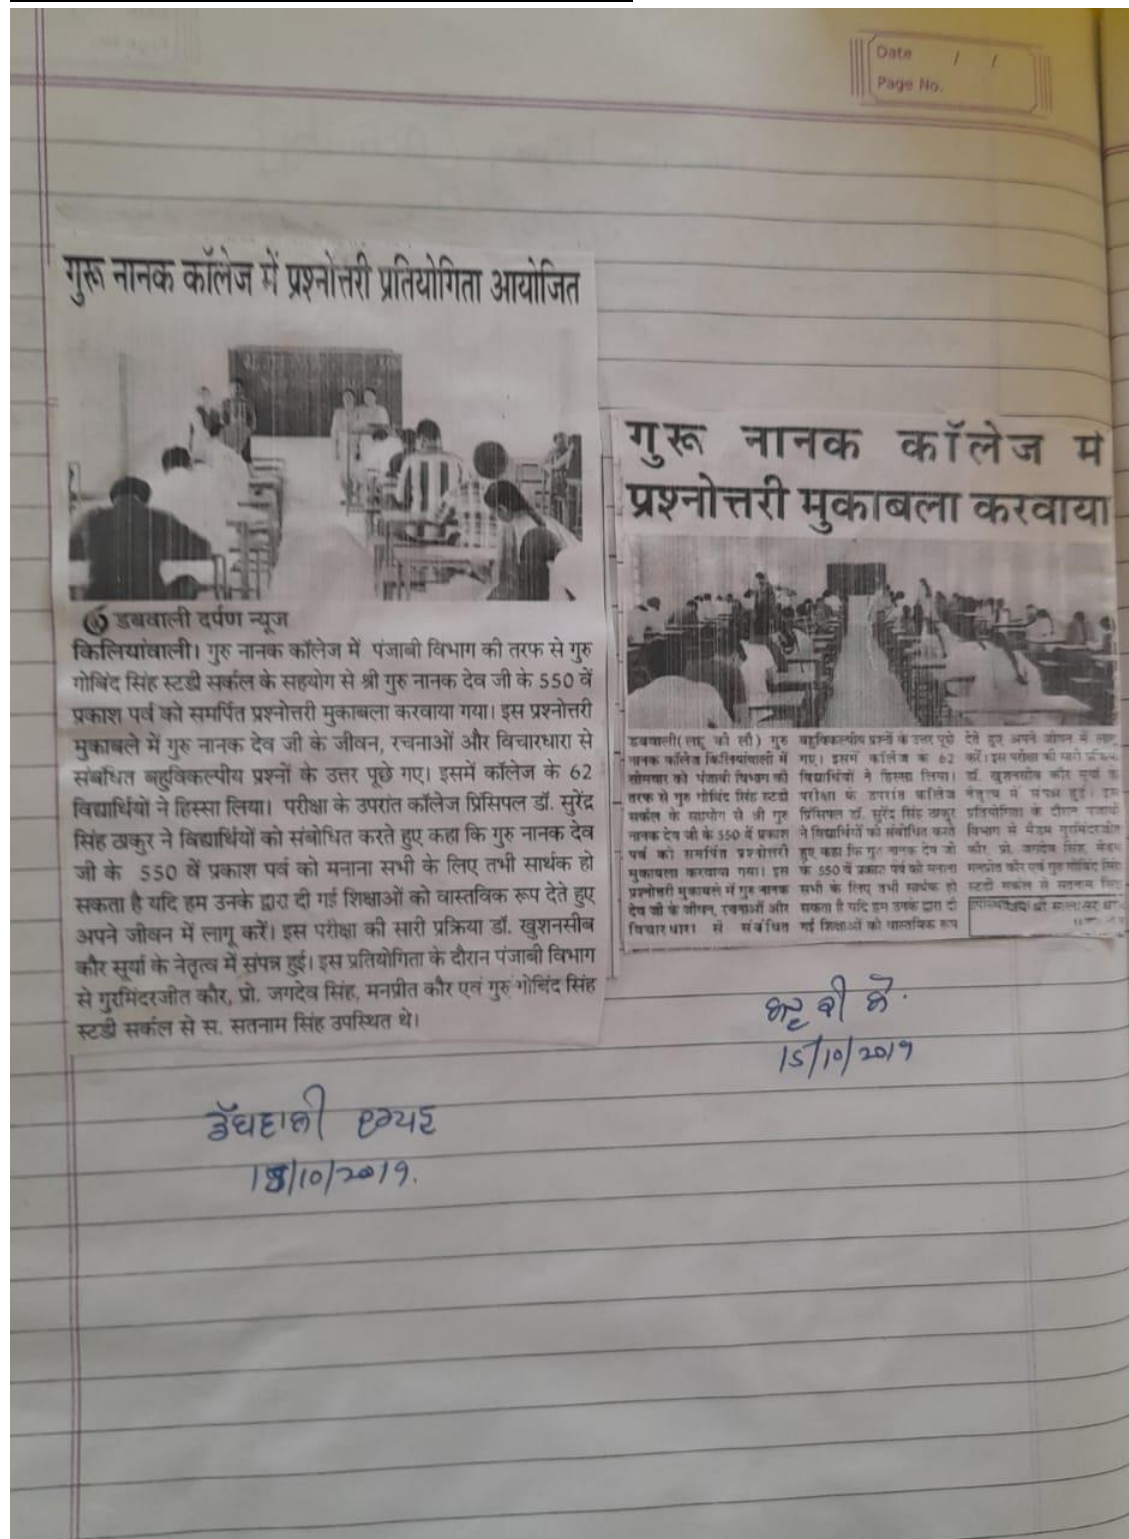 Date / /
Page No.
गुरू नानक कॉलेज में प्रश्नोत्तरी प्रतियोगिता आयोजित
डबवाली दर्पण न्यूज
किलियांवाली। गुरु नानक कॉलेज में पंजाबी विभाग की तरफ से गुरु
गोबिंद सिंह स्टडी सर्कल के सहयोग से श्री गुरु नानक देव जी के 550 वें
प्रकाश पर्व को समर्पित प्रश्नोत्तरी मुकाबला करवाया गया। इस प्रश्नोत्तरी
मुकाबले में गुरु नानक देव जी के जीवन, रचनाओं और विचारधारा से
संबंधित बहुविकल्पीय प्रश्नों के उत्तर पूछे गए। इसमें कॉलेज के 62
विद्यार्थियों ने हिस्सा लिया। परीक्षा के उपरांत कॉलेज प्रिंसिपल डॉ. सुरेंद्र
सिंह ठाकुर ने विद्यार्थियों को संबोधित करते हुए कहा कि गुरु नानक देव
जी के 550 वें प्रकाश पर्व को मनाना सभी के लिए तभी सार्थक हो
सकता है यदि हम उनके द्वारा दी गई शिक्षाओं को वास्तविक रूप देते हुए
अपने जीवन में लागू करें। इस परीक्षा की सारी प्रक्रिया डॉ. खुशनसीब
कौर सूर्या के नेतृत्व में संपन्न हुई। इस प्रतियोगिता के दौरान पंजाबी विभाग
से गुरमिंदरजीत कौर, प्रो. जगदेव सिंह, मनप्रीत कौर एवं गुरु गोबिंद सिंह
स्टडी सर्कल से स. सतनाम सिंह उपस्थित थे।
15/10/2019.
गुरू नानक कॉलेज में
प्रश्नोत्तरी मुकाबला करवाया
डबवाली(लहू की लौ) गुरु
नानक कॉलेज किलियांवाली में
सोमवार को पंजाबी विभाग की
तरफ से गुरु गोबिंद सिंह स्टडी
सर्कल के सहयोग से श्री गुरु
नानक देव जी के 550 वें प्रकाश
पर्व को समर्पित प्रश्नोत्तरी
मुकाबला करवाया गया। इस
प्रश्नोत्तरी मुकाबले में गुरु नानक
देव जी के जीवन, रचनाओं और
विचारधारा से संबंधित
बहुविकल्पीय प्रश्नों के उत्तर पूछे
गए। इसमें कॉलेज के 62
विद्यार्थियों ने हिस्सा लिया।
परीक्षा के उपरांत कॉलेज
प्रिंसिपल डॉ. सुरेंद्र सिंह ठाकुर
ने विद्यार्थियों को संबोधित करते
हुए कहा कि गुरु नानक देव जी
के 550 वें प्रकाश पर्व को मनाना
सभी के लिए तभी सार्थक हो
सकता है यदि हम उनके द्वारा दी
गई शिक्षाओं को वास्तविक रूप
देते हुए अपने जीवन में लागू
करें। इस परीक्षा की सारी प्रक्रिया
डॉ. खुशनसीब कौर सूर्या के
नेतृत्व में संपन्न हुई। इस
प्रतियोगिता के दौरान पंजाबी
विभाग से मैडम गुरमिंदरजीत
कौर, प्रो. जगदेव सिंह, मैडम
मनप्रीत कौर एवं गुरु गोबिंद सिंह
स्टडी सर्कल से सतनाम सिंह
15/10/2019